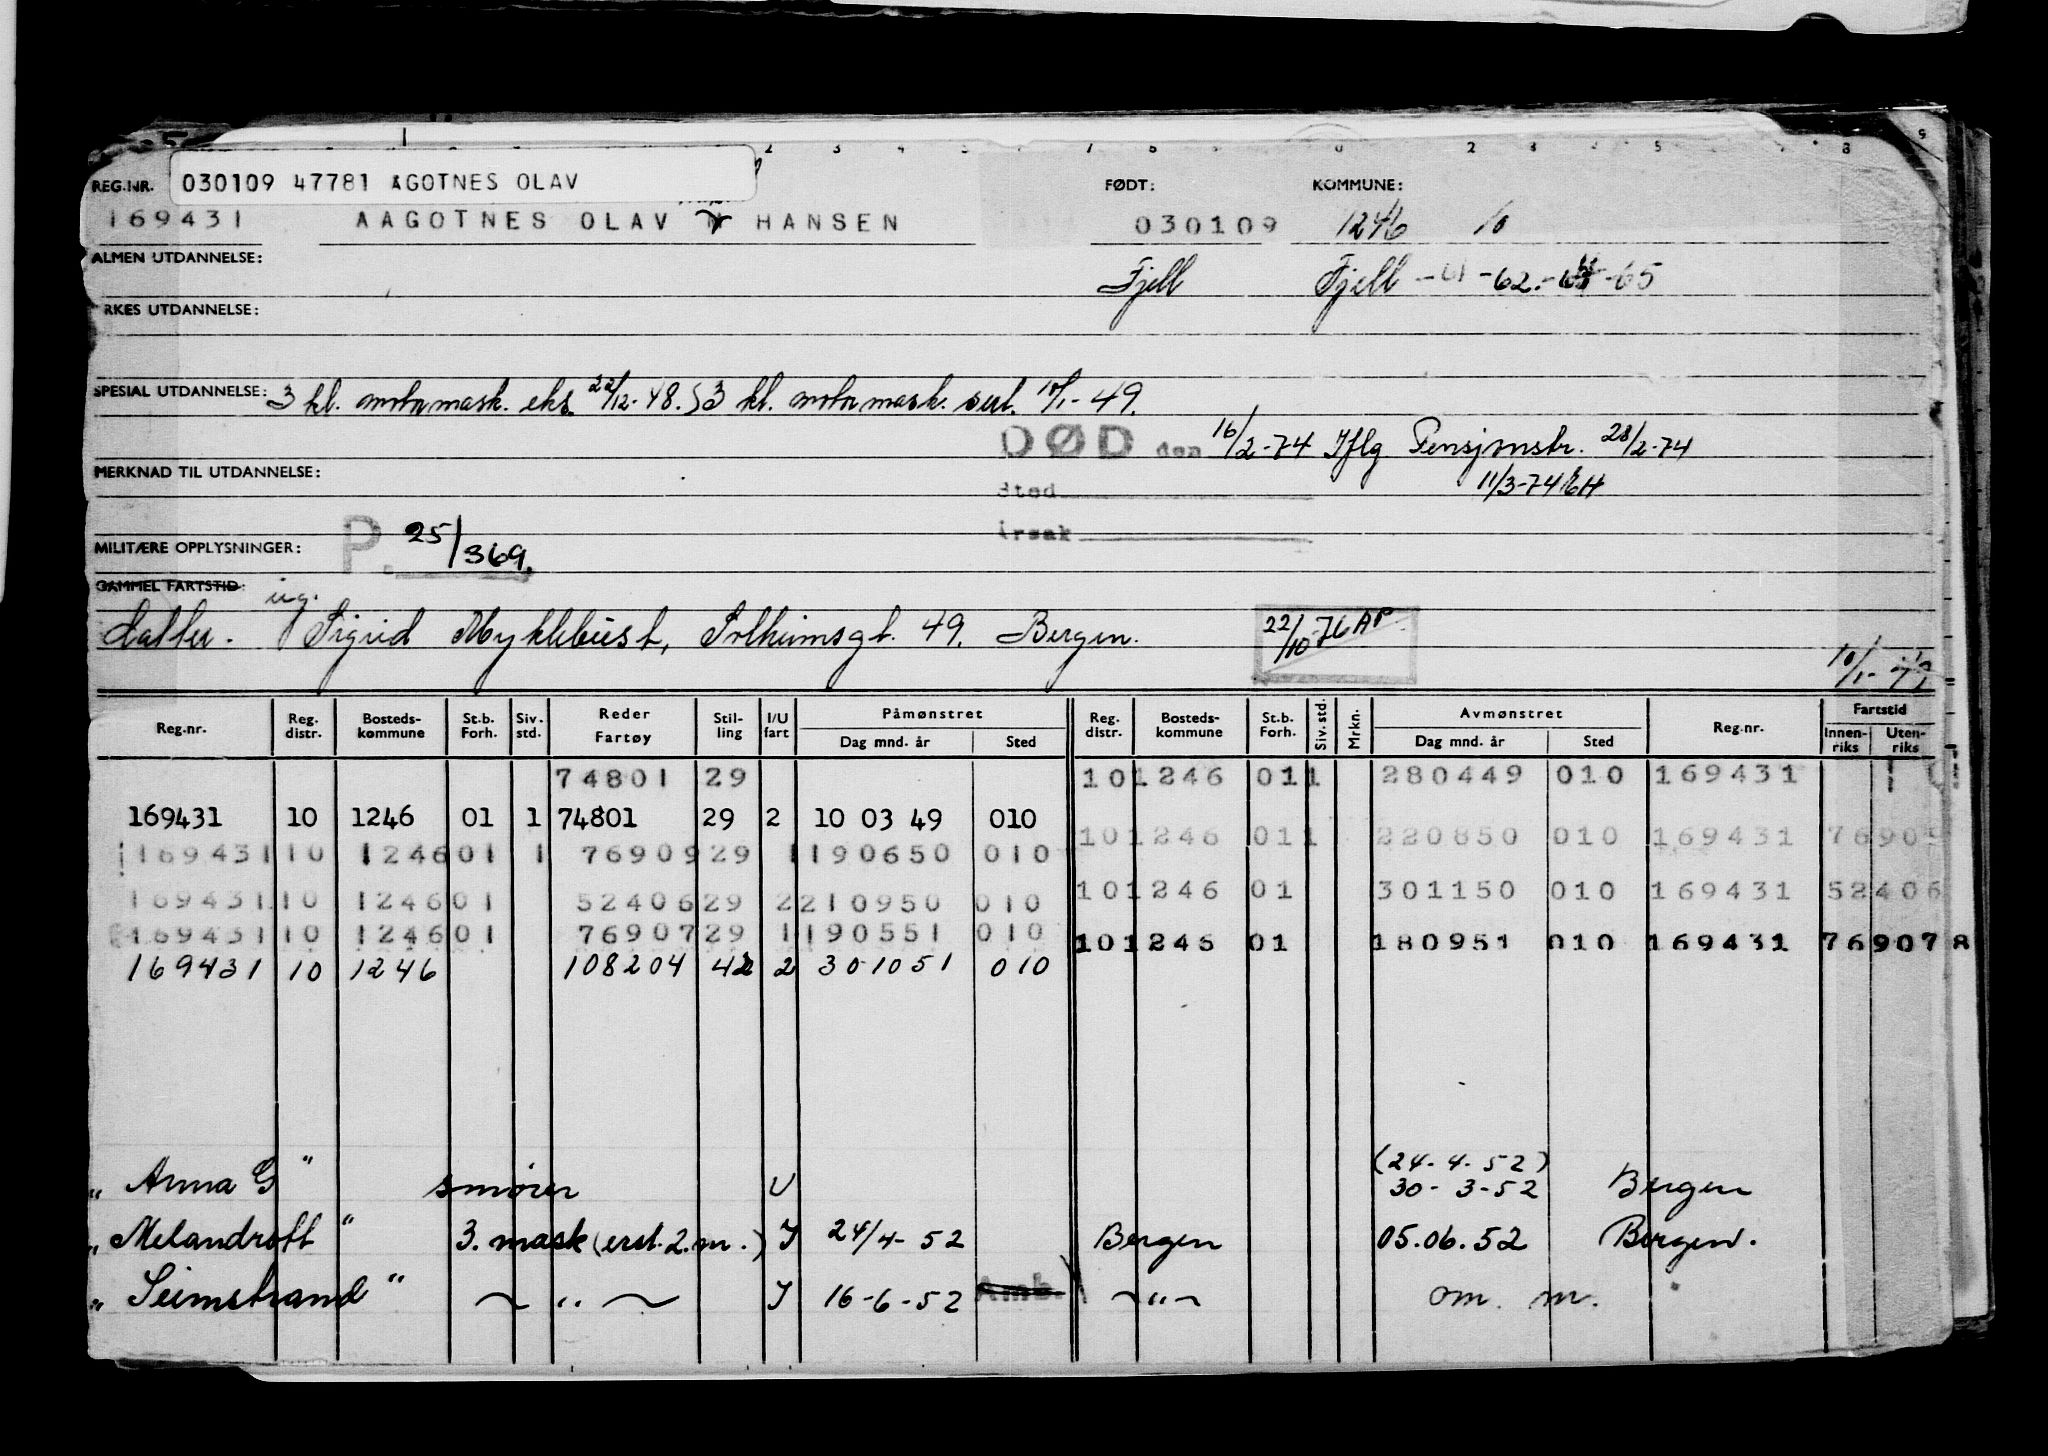 030109 47781 AGOTNES OLAV
REG.NR. FØDT: KOMMUNE:
169431 AAGOTNES OLAV HANSEN 030109 1246 10
ALMEN UTDANNELSE: Fjell Fjell -61 -62.- -65
RKES UTDANNELSE:
SPESIAL UTDANNELSE: 3 kl. motormask. eks. 22/12-48. 3 kl. motormask. sert. 10/1-49.
DØD den 16/2-74 Iflg Pensjonstr. 28/2-74
MERKNAD TIL UTDANNELSE: 11/3-74 EH
Sted
Årsak
MILITÆRE OPPLYSNINGER: P. 25/369.
GAMMEL FARTSTID: ug.
datter. Sigrid Myklebust, Solheimsgt. 49. Bergen. 22/10-76 AP
10/1-
Reg.nr. Reg. distr. Bosteds- kommune St.b. Forh. Siv. std. Reder Fartøy Stil- ling I/U fart Påmønstret Dag mnd. år Sted Reg. distr. Bosteds- kommune St.b. Forh. Siv. std. Mrkn. Avmønstret Dag mnd. år Sted Reg.nr. Fartstid Innen- riks Uten- riks
74801 29 10 1246 01 1 280449 010 169431
169431 10 1246 01 1 74801 29 2 10 03 49 010
10 1246 01 1 220850 010 169431 7690
169431 10 1246 01 1 76909 29 1 190650 010
10 1246 01 301150 010 169431 52406
169431 10 1246 01 52406 29 2 210950 010
169431 10 1246 01 76907 29 1 190551 010
10 1246 01 180951 010 169431 76907 8
169431 10 1246 108204 42 2 301051 010
(24-4-52)
" Anna G " smører U 30-3-52 Bergen
" Melandroth " 3. mask (erst. 2. m.) I 24/4-52 Bergen 05.06.52 Bergen.
" Seimstrand " ~ " ~ I 16-6-52 Amb. ~ " ~ om. m.